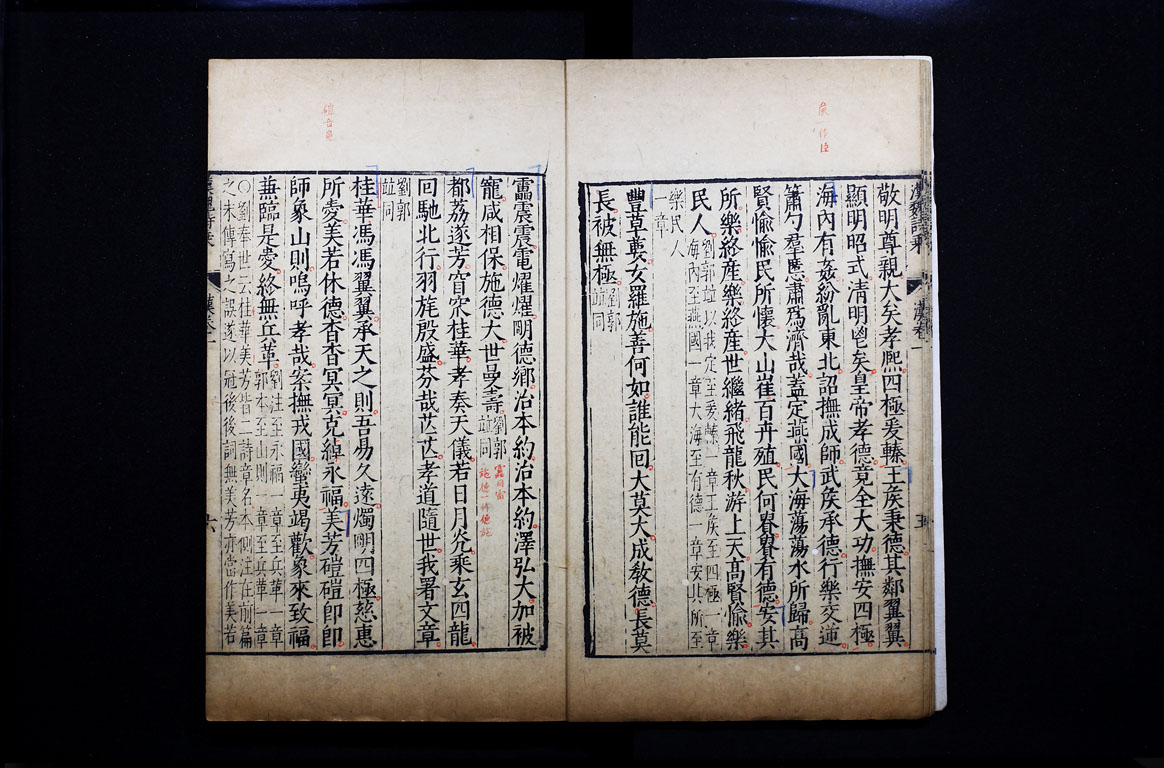 敬明尊親大矣孝熙四極爰轃王矦秉德其鄰翼翼
顯明昭式清明鬯矣皇帝孝德竟全大功撫安四極
海內有姦紛亂東北詔撫成師武矦承德行樂交逆
簫勺羣慝肅爲濟哉蓋定燕國大海蕩蕩水所歸高
賢愉愉民所懷大山崔百卉殖民何貴貴有德安其
所樂終産樂終産世繼緒飛龍秋游上天高賢愉樂
民人劉郭竝以我定至爰轃一章王矦至四極一章
海內至燕國一章大海至有德一章安其所至
樂民人
一章
豐草葽女羅施善何如誰能回大莫大成敎德長莫
長被無極劉郭
竝同
靁震震電燿燿明德鄉治本約治本約澤弘大加被
寵咸相保施德大世曼壽劉郭
竝同
都荔遂芳窅窊桂華孝奏天儀若日月光乘玄四龍
回馳北行羽旄殷盛芬哉芒芒孝道隨世我署文章
劉郭
竝同
桂華馮馮翼翼承天之則吾易久遠燭明四極慈惠
所愛美若休德杳杳冥冥克綽永福美芳磑磑卽卽
師象山則嗚呼孝哉案撫戎國蠻夷竭歡象來致福
兼臨是愛終無兵革劉注至永福一章至兵革一章
郭本至山則一章至兵革一章
○劉奉世云桂華美芳皆二詩章名本側注在前篇
之末傳寫之誤遂以冠後後詞無美芳亦當作美若
漢卷一
五
六
矦一作臣
磑音皚
靁同雷
施德一作德施